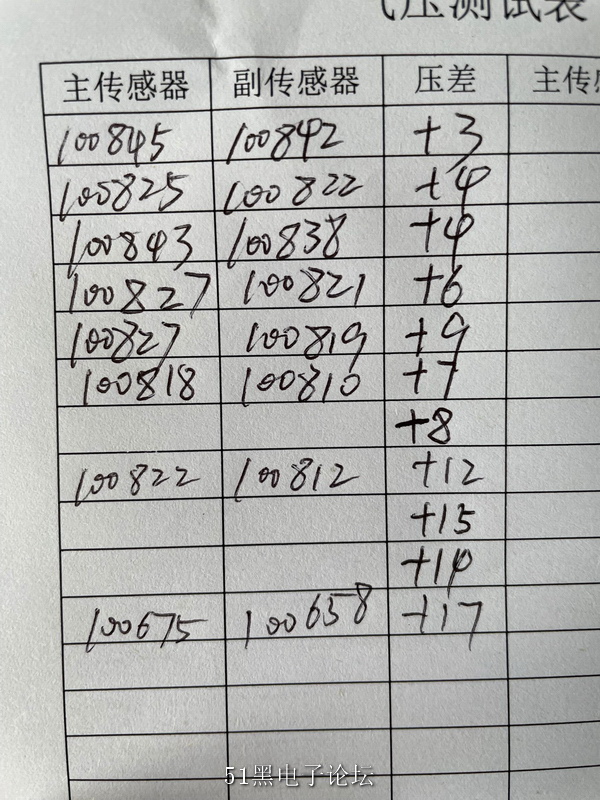 气压测试表
主传感器 副传感器 压差 主传感
100845 100842 +3
100825 100822 +4
100843 100838 +4
100827 100821 +6
100827 100819 +9
100818 100810 +7
+8
100822 100812 +12
+15
+14
100675 100658 +17
51黑电子论坛